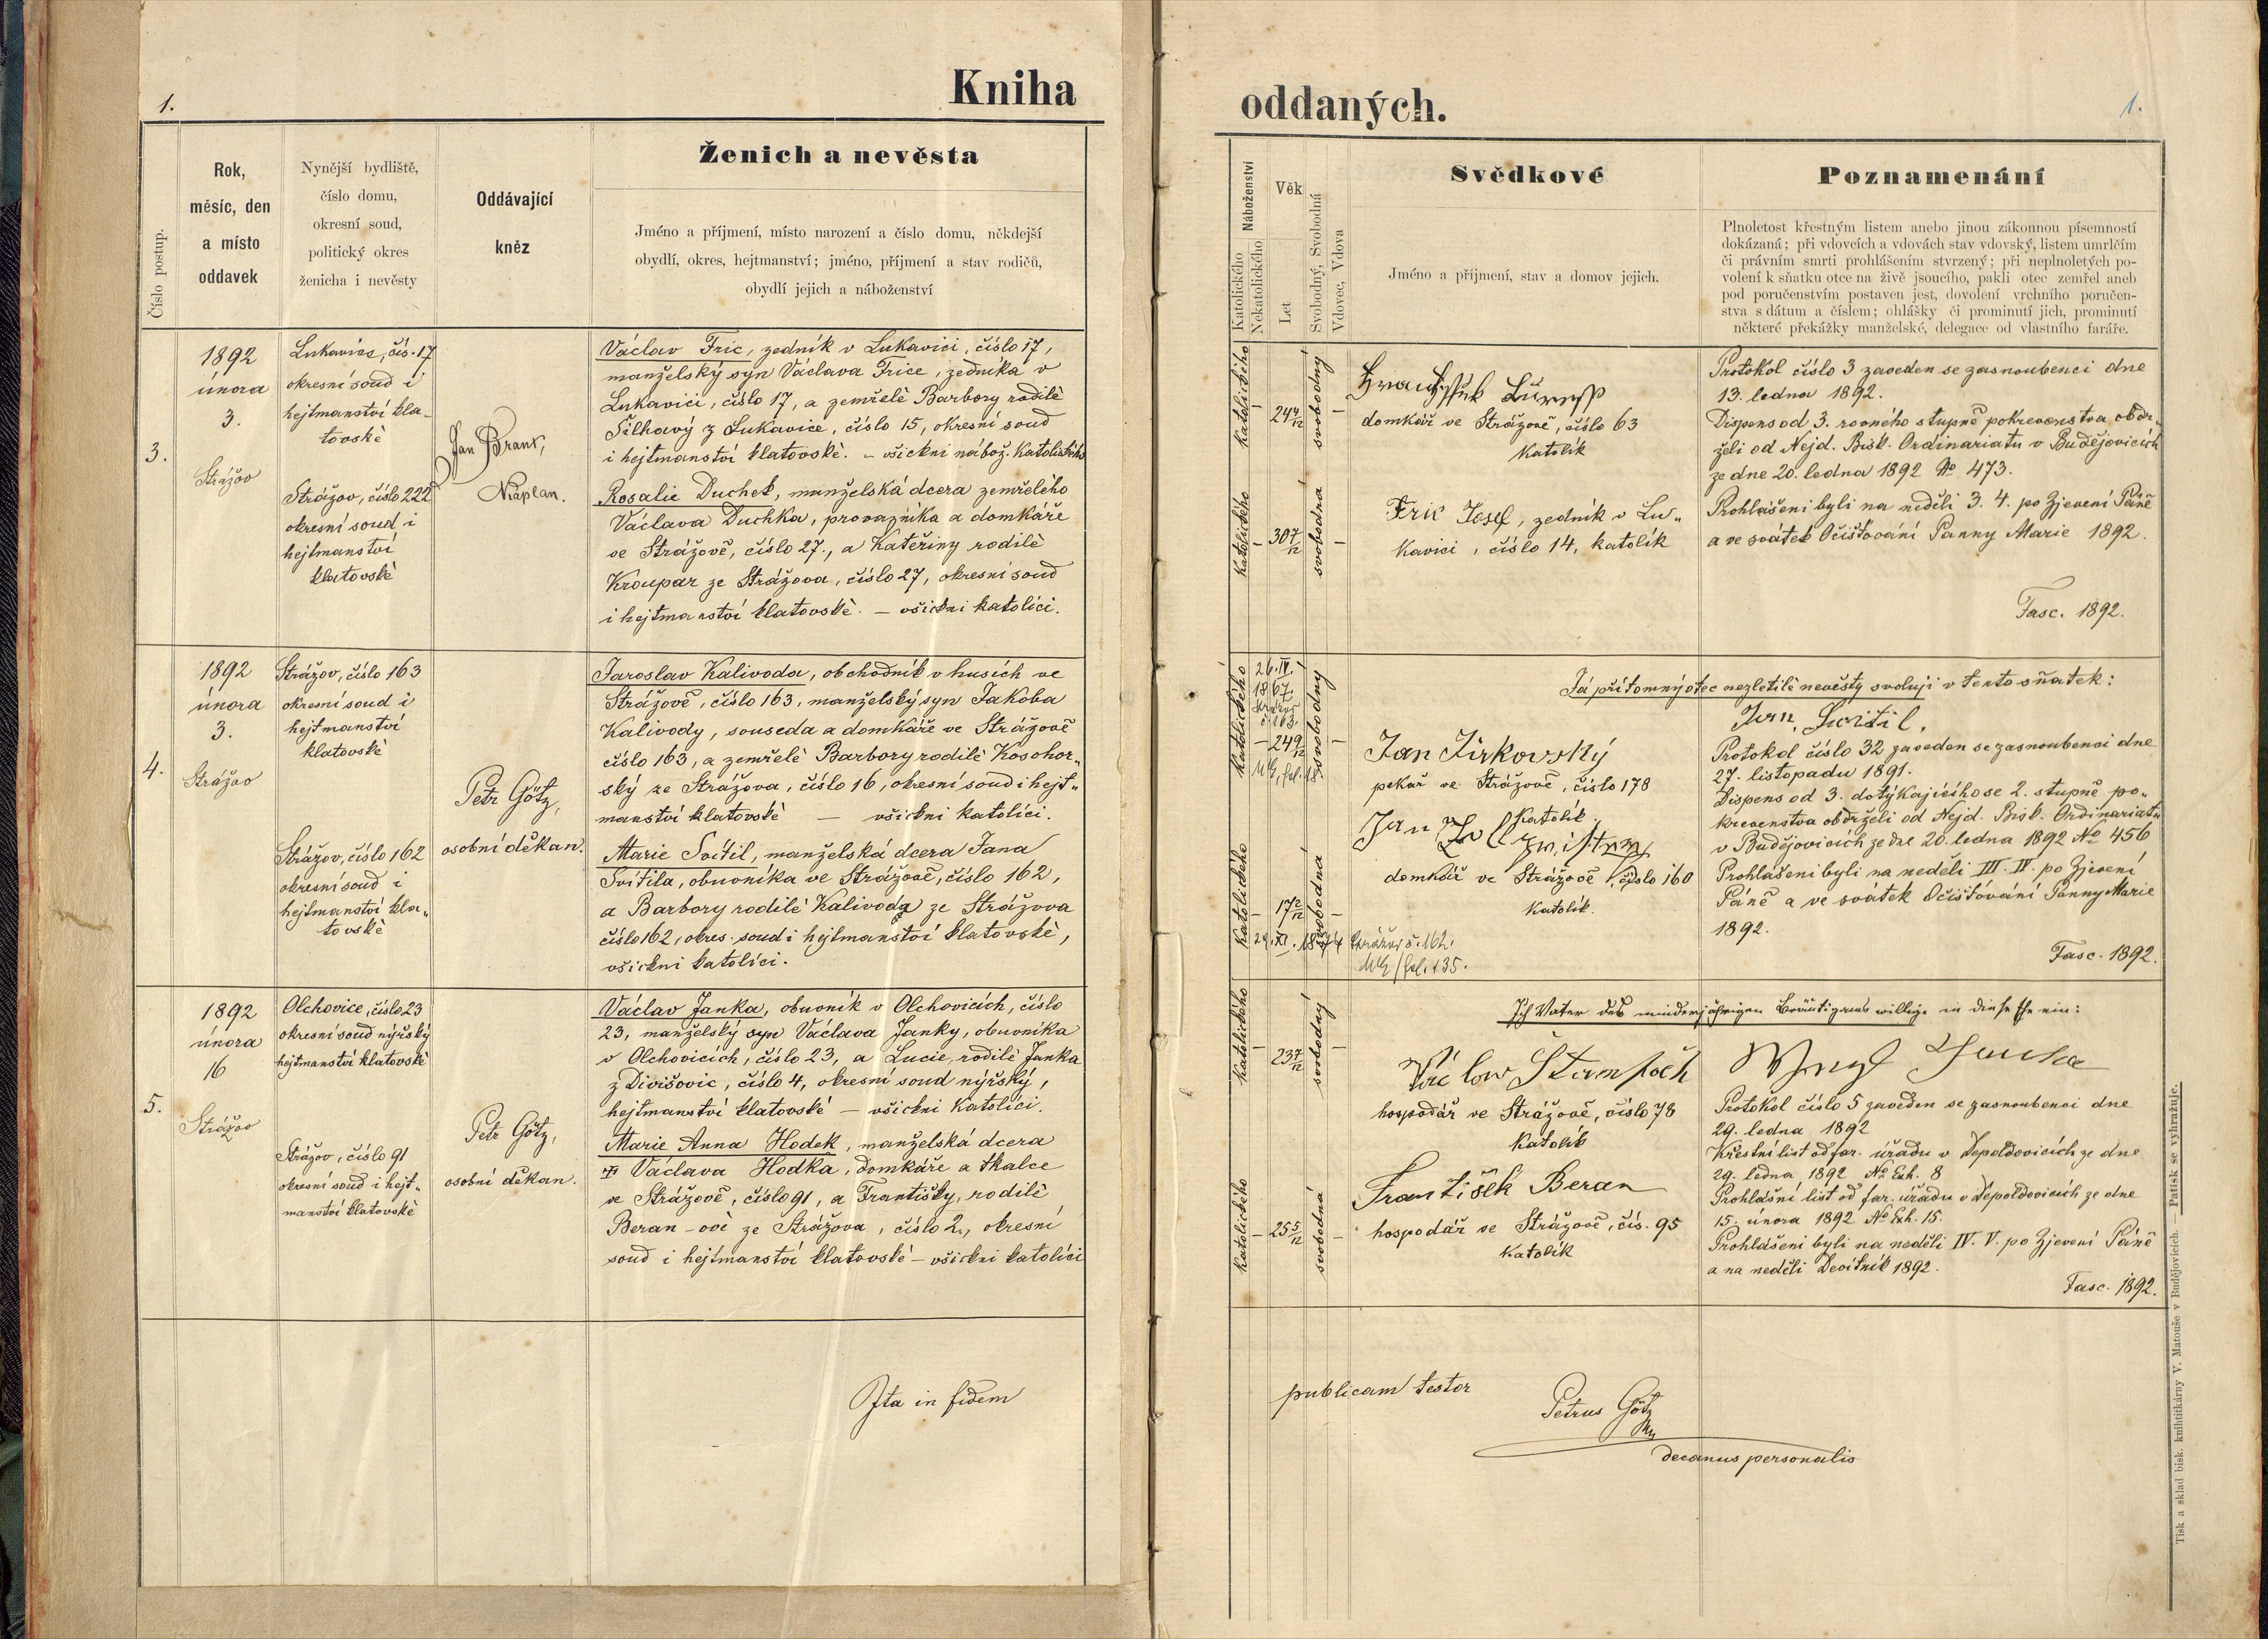 1.
Kniha
Číslo postup.
Rok,
měsíc, den
a místo
oddavek
Nynější bydliště,
číslo domu,
okresní soud,
politický okres
ženicha i nevěsty
Oddávající
kněz
Ženich a nevěsta
Jméno a příjmení, místo narození a číslo domu, někdejší
obydlí, okres, hejtmanství; jméno, příjmení a stav rodičů,
obydlí jejich a náboženství
3.
1892
února
3.
Strážov
Lukavice, čís. 17
okresní soud i
hejtmanství kla-
tovské
Strážov, číslo 222
okresní soud i
hejtmanství
klatovské
Jan Brant,
Kaplan.
Václav Fric, zedník v Lukavici, číslo 17,
manželský syn Václava Frice, zedníka v
Lukavici, číslo 17, a zemřelé Barbory rodilé
Silhavý z Lukavice, číslo 15, okresní soud
i hejtmanství klatovské. – všickni nábož. katolického
Rosalie Duchek, manželská dcera zemřelého
Václava Duchka, provazníka a domkáře
ve Strážově, číslo 27., a Kateřiny rodilé
Kroupar ze Strážova, číslo 27, okresní soud
i hejtmanství klatovské. – všickni katolíci.
4.
1892
února
3.
Strážov
Strážov, číslo 163
okresní soud i
hejtmanství
klatovské
Strážov, číslo 162
okresní soud i
hejtmanství kla„
tovské
Petr Götz,
osobní děkan.
Jaroslav Kalivoda, obchodník v husích ve
Strážově, číslo 163, manželský syn Jakoba
Kalivody, souseda a domkáře ve Strážově
číslo 163, a zemřelé Barbory rodilé Kosohor„
ský ze Strážova, číslo 16, okresní soud i hejt„
manství klatovské — všickni katolíci.
Marie Svítil, manželská dcera Jana
Svítila, obuvníka ve Strážově, číslo 162,
a Barbory rodilé Kalivoda ze Strážova
číslo 162, okres. soud i hejtmanství klatovské,
všickni katolíci.
5.
1892
února
16
Strážov
Olchovice, číslo 23
okresní soud nýrský
hejtmanství klatovské
Strážov, číslo 91
okresní soud i hejt„
manství klatovské
Petr Götz,
osobní děkan.
Václav Janka, obuvník v Olchovicích, číslo
23, manželský syn Václava Janky, obuvníka
v Olchovicích, číslo 23, a Lucie rodilé Janka
z Divišovic, číslo 4, okresní soud nýrský,
hejtmanství klatovské – všickni Katolíci.
Marie Anna Hodek, manželská dcera
Václava Hodka, domkáře a tkalce
ve Strážově, číslo 91, a Františky, rodilé
Beran-ové ze Strážova, číslo 2., okresní
soud i hejtmanství klatovské – všickni katolíci
Ita in fidem
oddaných.
1.
Náboženství
Katolického
Nekatolického
Věk
Let
Svobodný, Svobodná
Vdovec, Vdova
Svědkové
Jméno a příjmení, stav a domov jejich.
Poznamenání
Plnoletost křestným listem anebo jinou zákonnou písemností
dokázaná; při vdovcích a vdovách stav vdovský, listem umrlčím
či právním smrti prohlášením stvrzený; při neplnoletých po-
volení k sňatku otce na živě jsoucího, pakli otec zemřel aneb
pod poručenstvím postaven jest, dovolení vrchního poručen-
stva s dátum a číslem; ohlášky či prominutí jich, prominutí
některé překážky manželské, delegace od vlastního faráře.
katolického
24 4/12
svobodný
domkář ve Strážově, číslo 63
Katolík
katolického
30 7/12
svobodná
Fric Josef, zedník v Lu„
kavici, číslo 14, katolík
Protokol číslo 3 zaveden se zasnoubenci dne
13. ledna 1892.
Dispens od 3. rovného stupně pokrevenstva obdr„
želi od Nejd. Bisk. Ordinariatu v Budějovicích
ze dne 20. ledna 1892 No 473.
Prohlášeni byli na neděli 3. 4. po Zjevení Páně
a ve svátek Očišťování Panny Marie 1892.
Fasc. 1892.
katolického
26. IV.
1867.
č. 163.
24 9/12
svobodný
Jan Jirkovský
pekař ve Strážově, číslo 178
Katolík.
Jan
domkář ve Strážově, číslo 160
Katolík.
katolického
17 2/12
svobodná
29. XI. 1874 Strážov č. 162.
fol. 135.
Já přítomný otec nezletilé nevěsty svoluji v tento sňatek:
Jan Svitil,
Protokol číslo 32 zaveden se zasnoubenci dne
27. listopadu 1891.
Dispens od 3. dotýkajícího se 2. stupně po„
krevenstva obdrželi od Nejd. Bisk. Ordinariatu
v Budějovicích ze dne 20. ledna 1892 No 456
Prohlášeni byli na neděli III. IV. po Zjevení
Páně a ve svátek Očišťování Panny Marie
1892.
Fasc. 1892.
katolického
23 7/12
svobodný
Václav
hospodář ve Strážově, číslo 78
Katolík
katolického
25 5/12
svobodná
František Beran
hospodář ve Strážově, čís. 95
Katolík
Ich Vater des minderjährigen Bräutigams willige in diese Ehe ein:
Wenzl Janka
Protokol číslo 5 zaveden se zasnoubenci dne
29. ledna 1892
Křestní list od far. úřadu v Depoldovicích ze dne
29. ledna 1892 No Exh. 8
Prohlášní list od far. úřadu v Depoldovicích ze dne
15. února 1892 No Exh. 15.
Prohlášeni byli na neděli IV. V. po Zjevení Páně
a na neděli Devítník 1892.
Fasc. 1892.
publicam testor
Petrus Götz
decanus personalis
Tisk a sklad bisk. knihtiskárny V. Matouše v Budějovicích. — Patisk se vyhražuje.